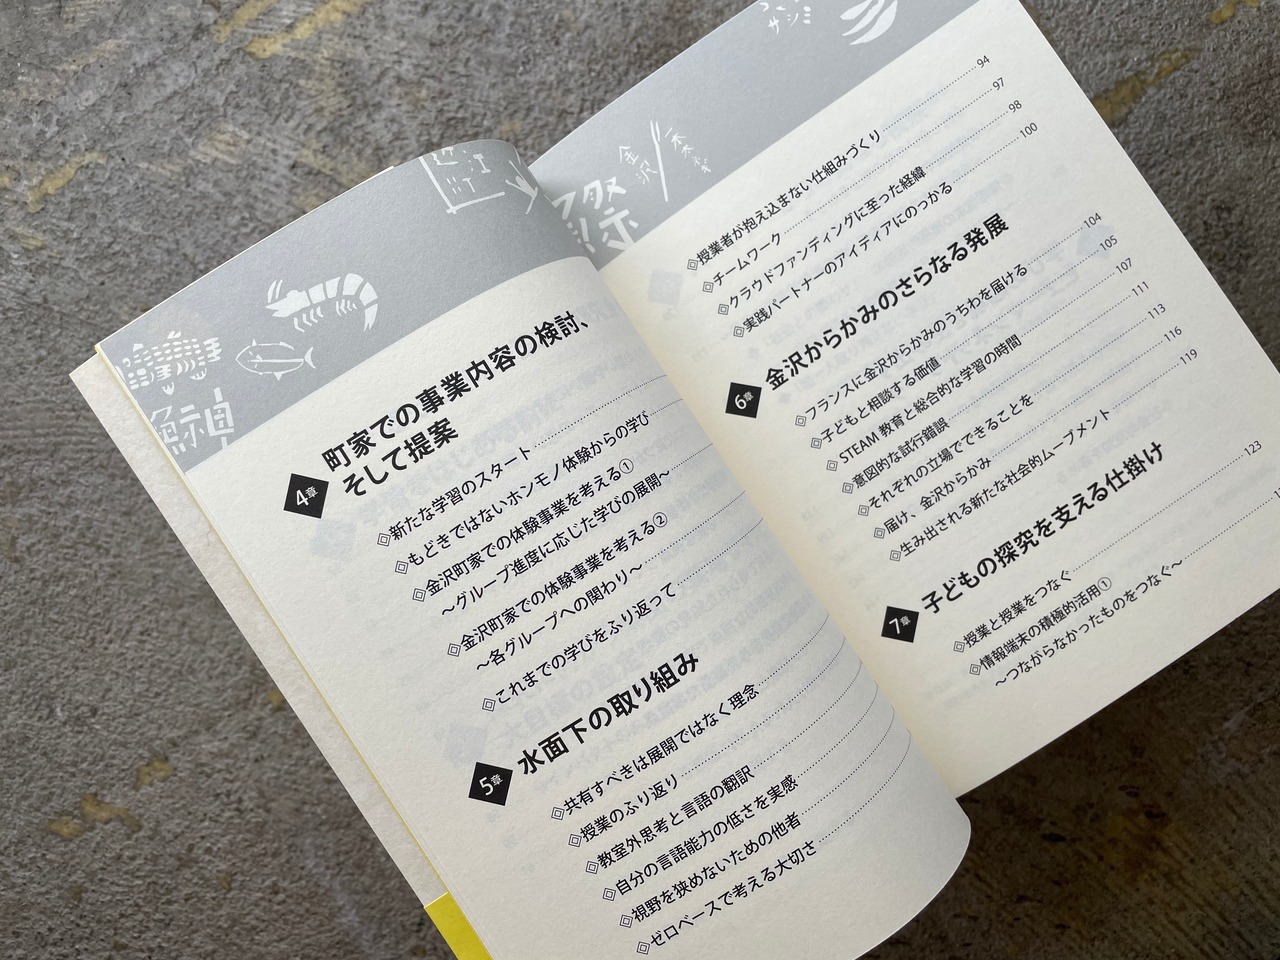 近江町
4章 町家での事業内容の検討、
そして提案
新たな学習のスタート
もどきではないホンモノ体験からの学び
金沢町家での体験事業を考える①
～グループ進度に応じた学びの展開～
金沢町家での体験事業を考える②
～各グループへの関わり～
これまでの学びをふり返って
5章 水面下の取り組み
共有すべきは展開ではなく理念
授業のふり返り
教室外思考と言語の翻訳
自分の言語能力の低さを実感
視野を狭めないための他者
ゼロベースで考える大切さ
サシミ
金沢
授業者が抱え込まない仕組みづくり 94
チームワーク 97
クラウドファンディングに至った経緯 98
実践パートナーのアイディアにのっかる 100
6章 金沢からかみのさらなる発展
フランスに金沢からかみのうちわを届ける 104
子どもと相談する価値 105
STEAM 教育と総合的な学習の時間 107
意図的な試行錯誤 111
それぞれの立場でできることを 113
届け、金沢からかみ 116
生み出される新たな社会的ムーブメント 119
7章 子どもの探究を支える仕掛け
授業と授業をつなぐ 123
情報端末の積極的活用①
～つながらなかったものをつなぐ～